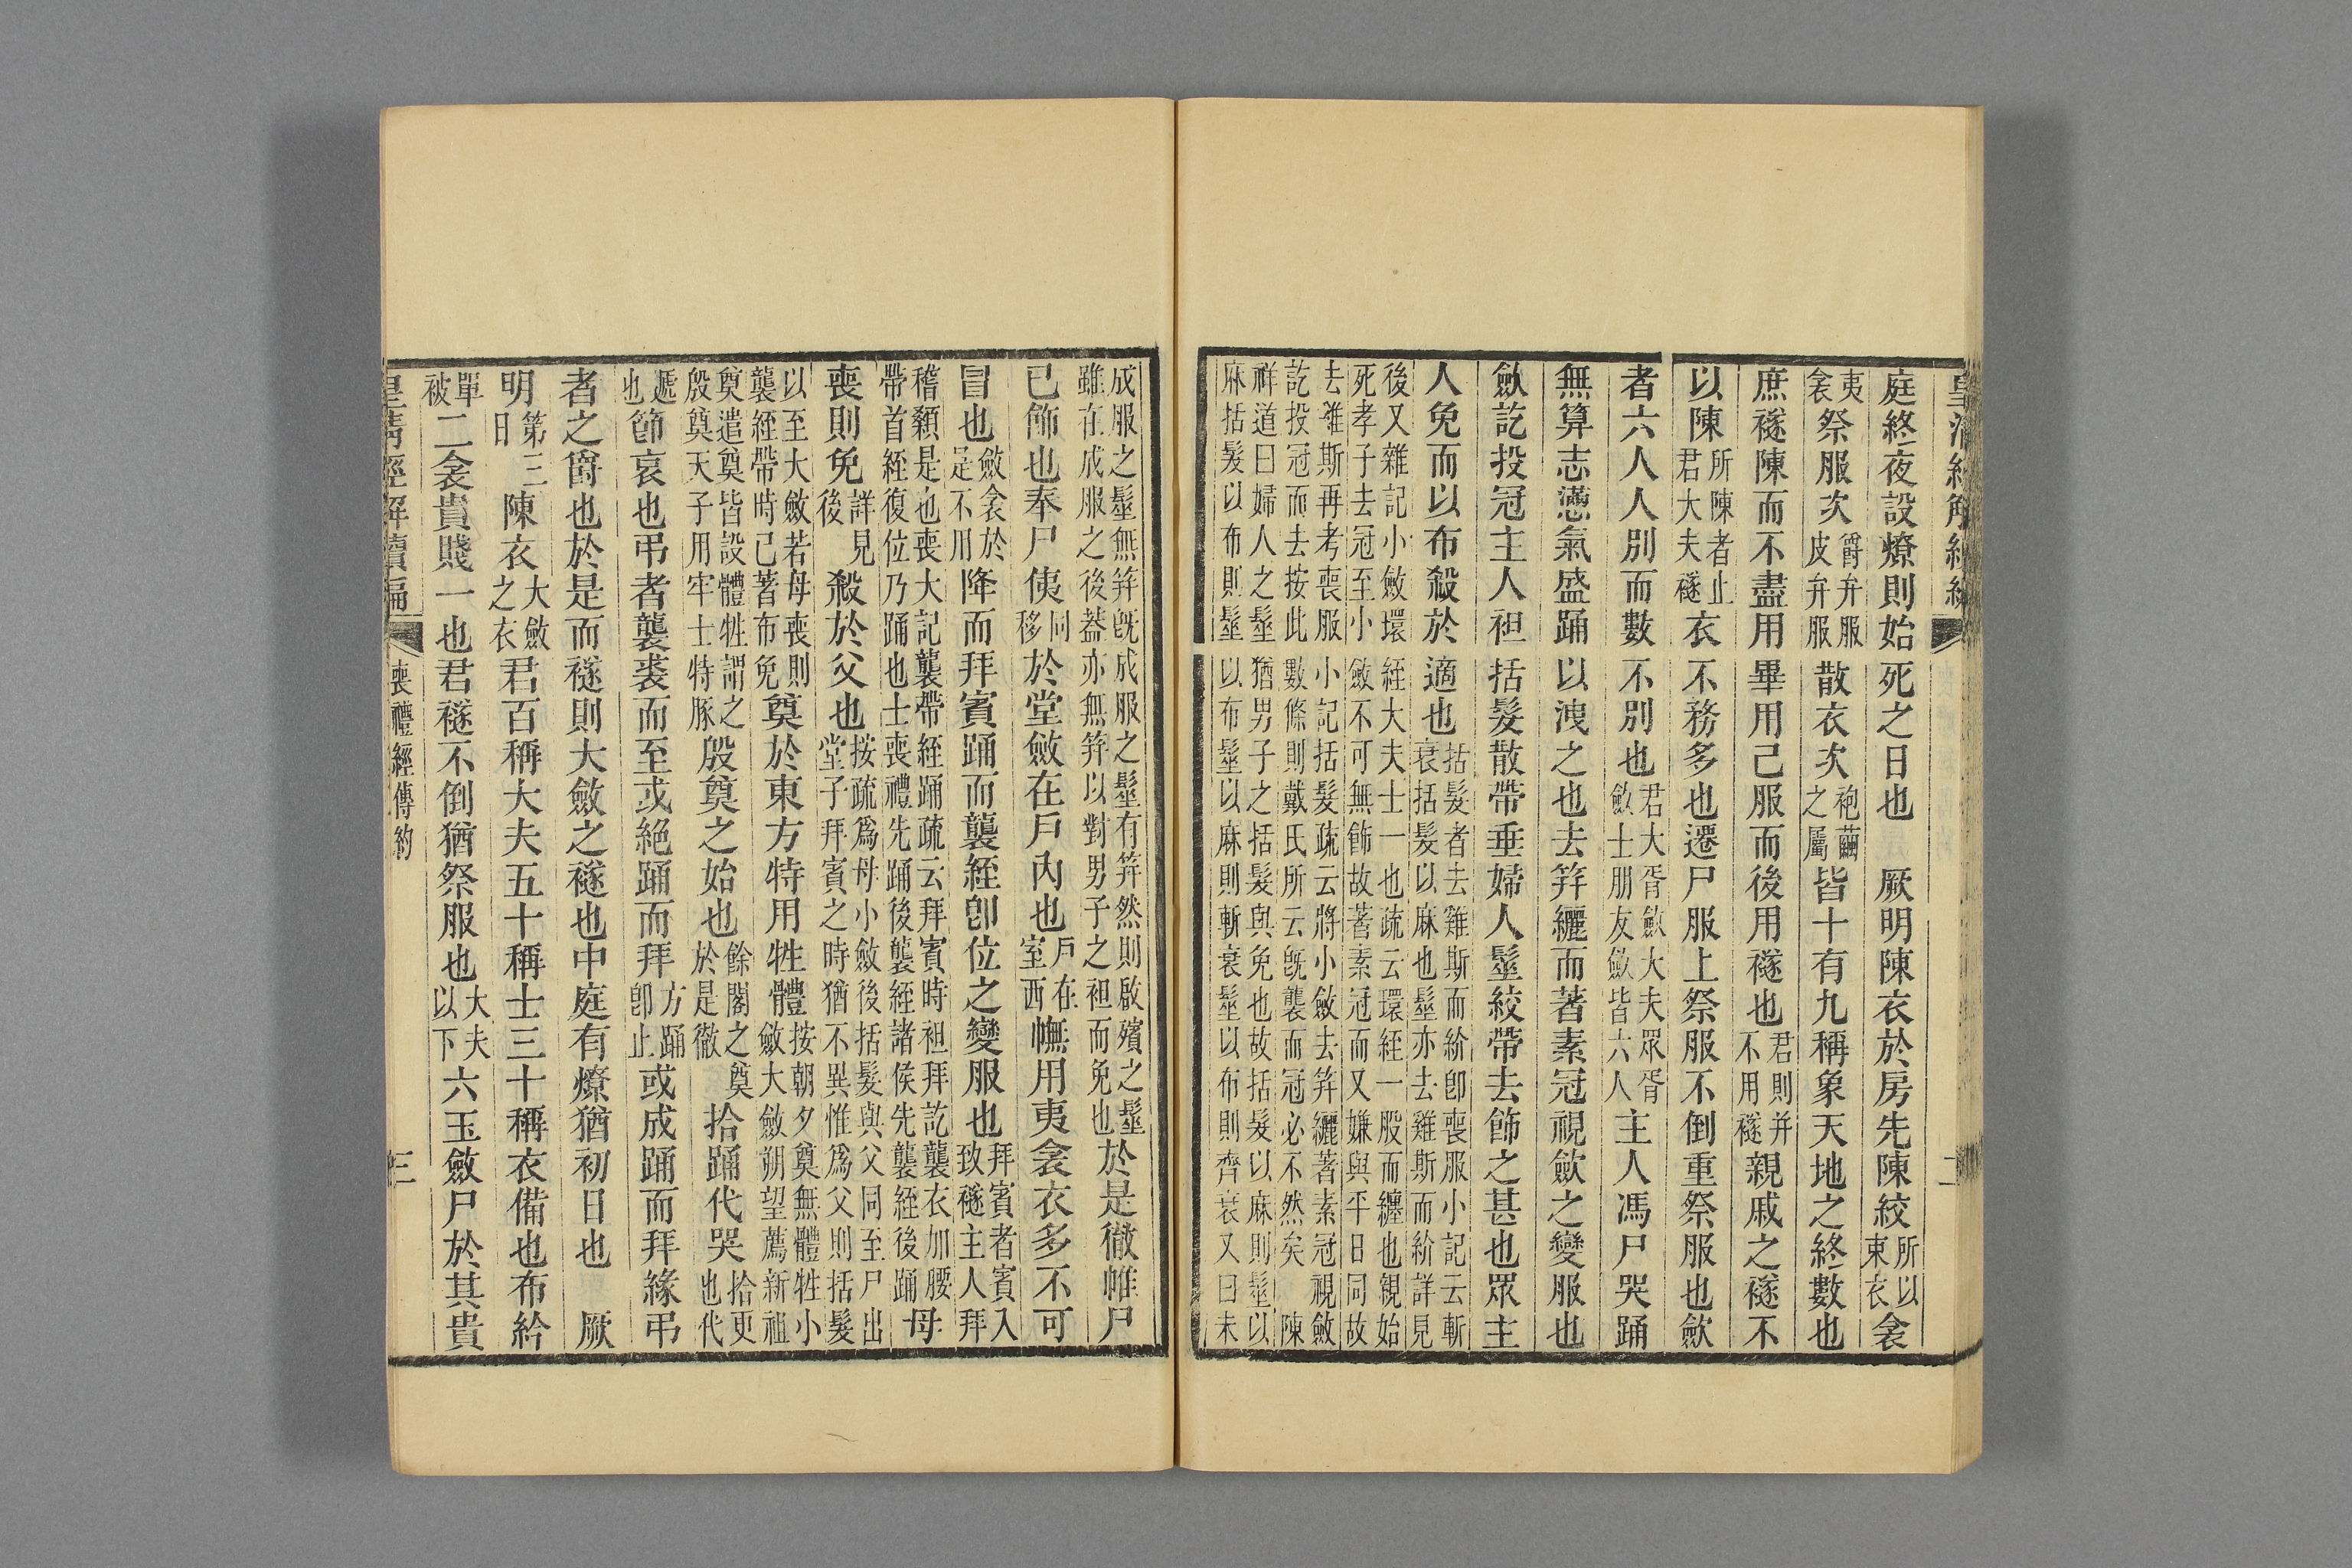 皇清經解續編
庭終夜設燎則始死之日也　厥明陳衣於房先陳絞所以束衣衾
夷衾祭服次爵弁服皮弁服散衣次袍繭之屬皆十有九稱象天地之終數也
庶襚陳而不盡用畢用己服而後用襚也君則并不用襚親戚之襚不
以陳所陳者止君大夫襚衣不務多也遷尸服上祭服不倒重祭服也歛
者六人人別而數不別也君大胥斂大夫眾胥斂士朋友斂皆六人主人馮尸哭踊
無算志懣氣盛踊以洩之也去笄纚而著素冠視歛之變服也
歛訖投冠主人袒括髮散帶垂婦人髽絞帶去飾之甚也眾主
人免而以布殺於適也括髮者去雞斯而紒卽喪服小記云斬衰括髮以麻也髽亦去雞斯而紒詳見
後又雜記小斂環絰大夫士一也疏云環絰一股而纏也親始
死孝子去冠至小斂不可無飾故著素冠而又嫌與平日同故
去雞斯再考喪服小記括髮疏云將小斂去笄纚著素冠視斂
訖投冠而去按此數條則戴氏所云旣襲而冠必不然矣　陳
祥道曰婦人之髽猶男子之括髮與免也故括髮以麻則髽以
麻括髮以布則髽以布髽以麻則斬衰髽以布則齊衰又曰未
成服之髽無笄旣成服之髽有笄然則啟殯之髽雖在成服之後葢亦無笄以對男子之袒而免也於是徹帷尸
已飾也奉尸侇同移於堂斂在戶內也戶在室西幠用夷衾衣多不可
冒也斂衾於是不用降而拜賓踊而襲絰卽位之變服也拜賓者賓入致襚主人拜
稽顙是也喪大記襲帶絰踊疏云拜賓時袒拜訖襲衣加腰帶首絰復位乃踊也士喪禮先踊後襲絰諸侯先襲絰後踊母
喪則免詳見後殺於父也按疏爲母小斂後括髮與父同至尸出堂子拜賓之時猶不異惟爲父則括髮
以至大斂若母喪則襲絰帶時已著布免奠於東方特用牲體按朝夕奠無體牲小斂大斂朔望薦新祖
奠遣奠皆設體牲謂之殷奠天子用牢士特豚殷奠之始也餘閣之奠於是徹拾踊代哭拾更也代
遞也節哀也弔者襲裘而至或絶踊而拜方踊卽止或成踊而拜緣弔
者之爵也於是而襚則大斂之襚也中庭有燎猶初日也　厥
明第三日陳衣大斂之衣君百稱大夫五十稱士三十稱衣備也布紟
單被二衾貴賤一也君襚不倒猶祭服也大夫以下六玉斂尸於其貴
皇清經解續編　喪禮經傳約　三